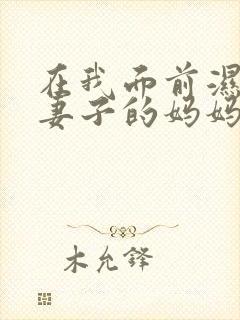 在我而前濕
妻子的妈妈
木允鋒